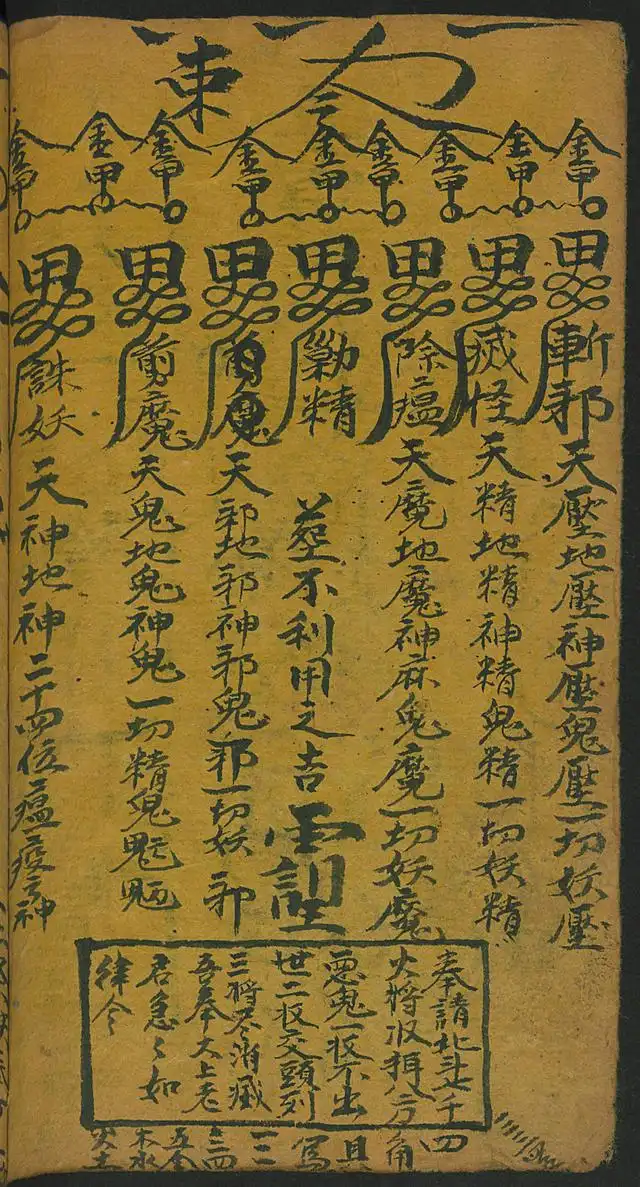 敕令
金甲 金甲 金甲 金甲 金甲 金甲 金甲 金甲 金甲
斬邪天壓地壓神壓鬼壓一切妖壓
滅怪天精地精神精鬼精一切妖精
除瘟天魔地魔神麻鬼魔一切妖魔
勦精
葬不利用之吉
天邪地邪神邪鬼邪一切妖邪
剪魔天鬼地鬼神鬼一切精鬼
誅妖天神地神二十四位瘟疫神
奉請北斗七千四
大將收捐八方角
惡鬼一根不出具
世二根交頭列寫
三將尽消滅一二
吾奉太上老三四
君急々如五金
律令木水
火土